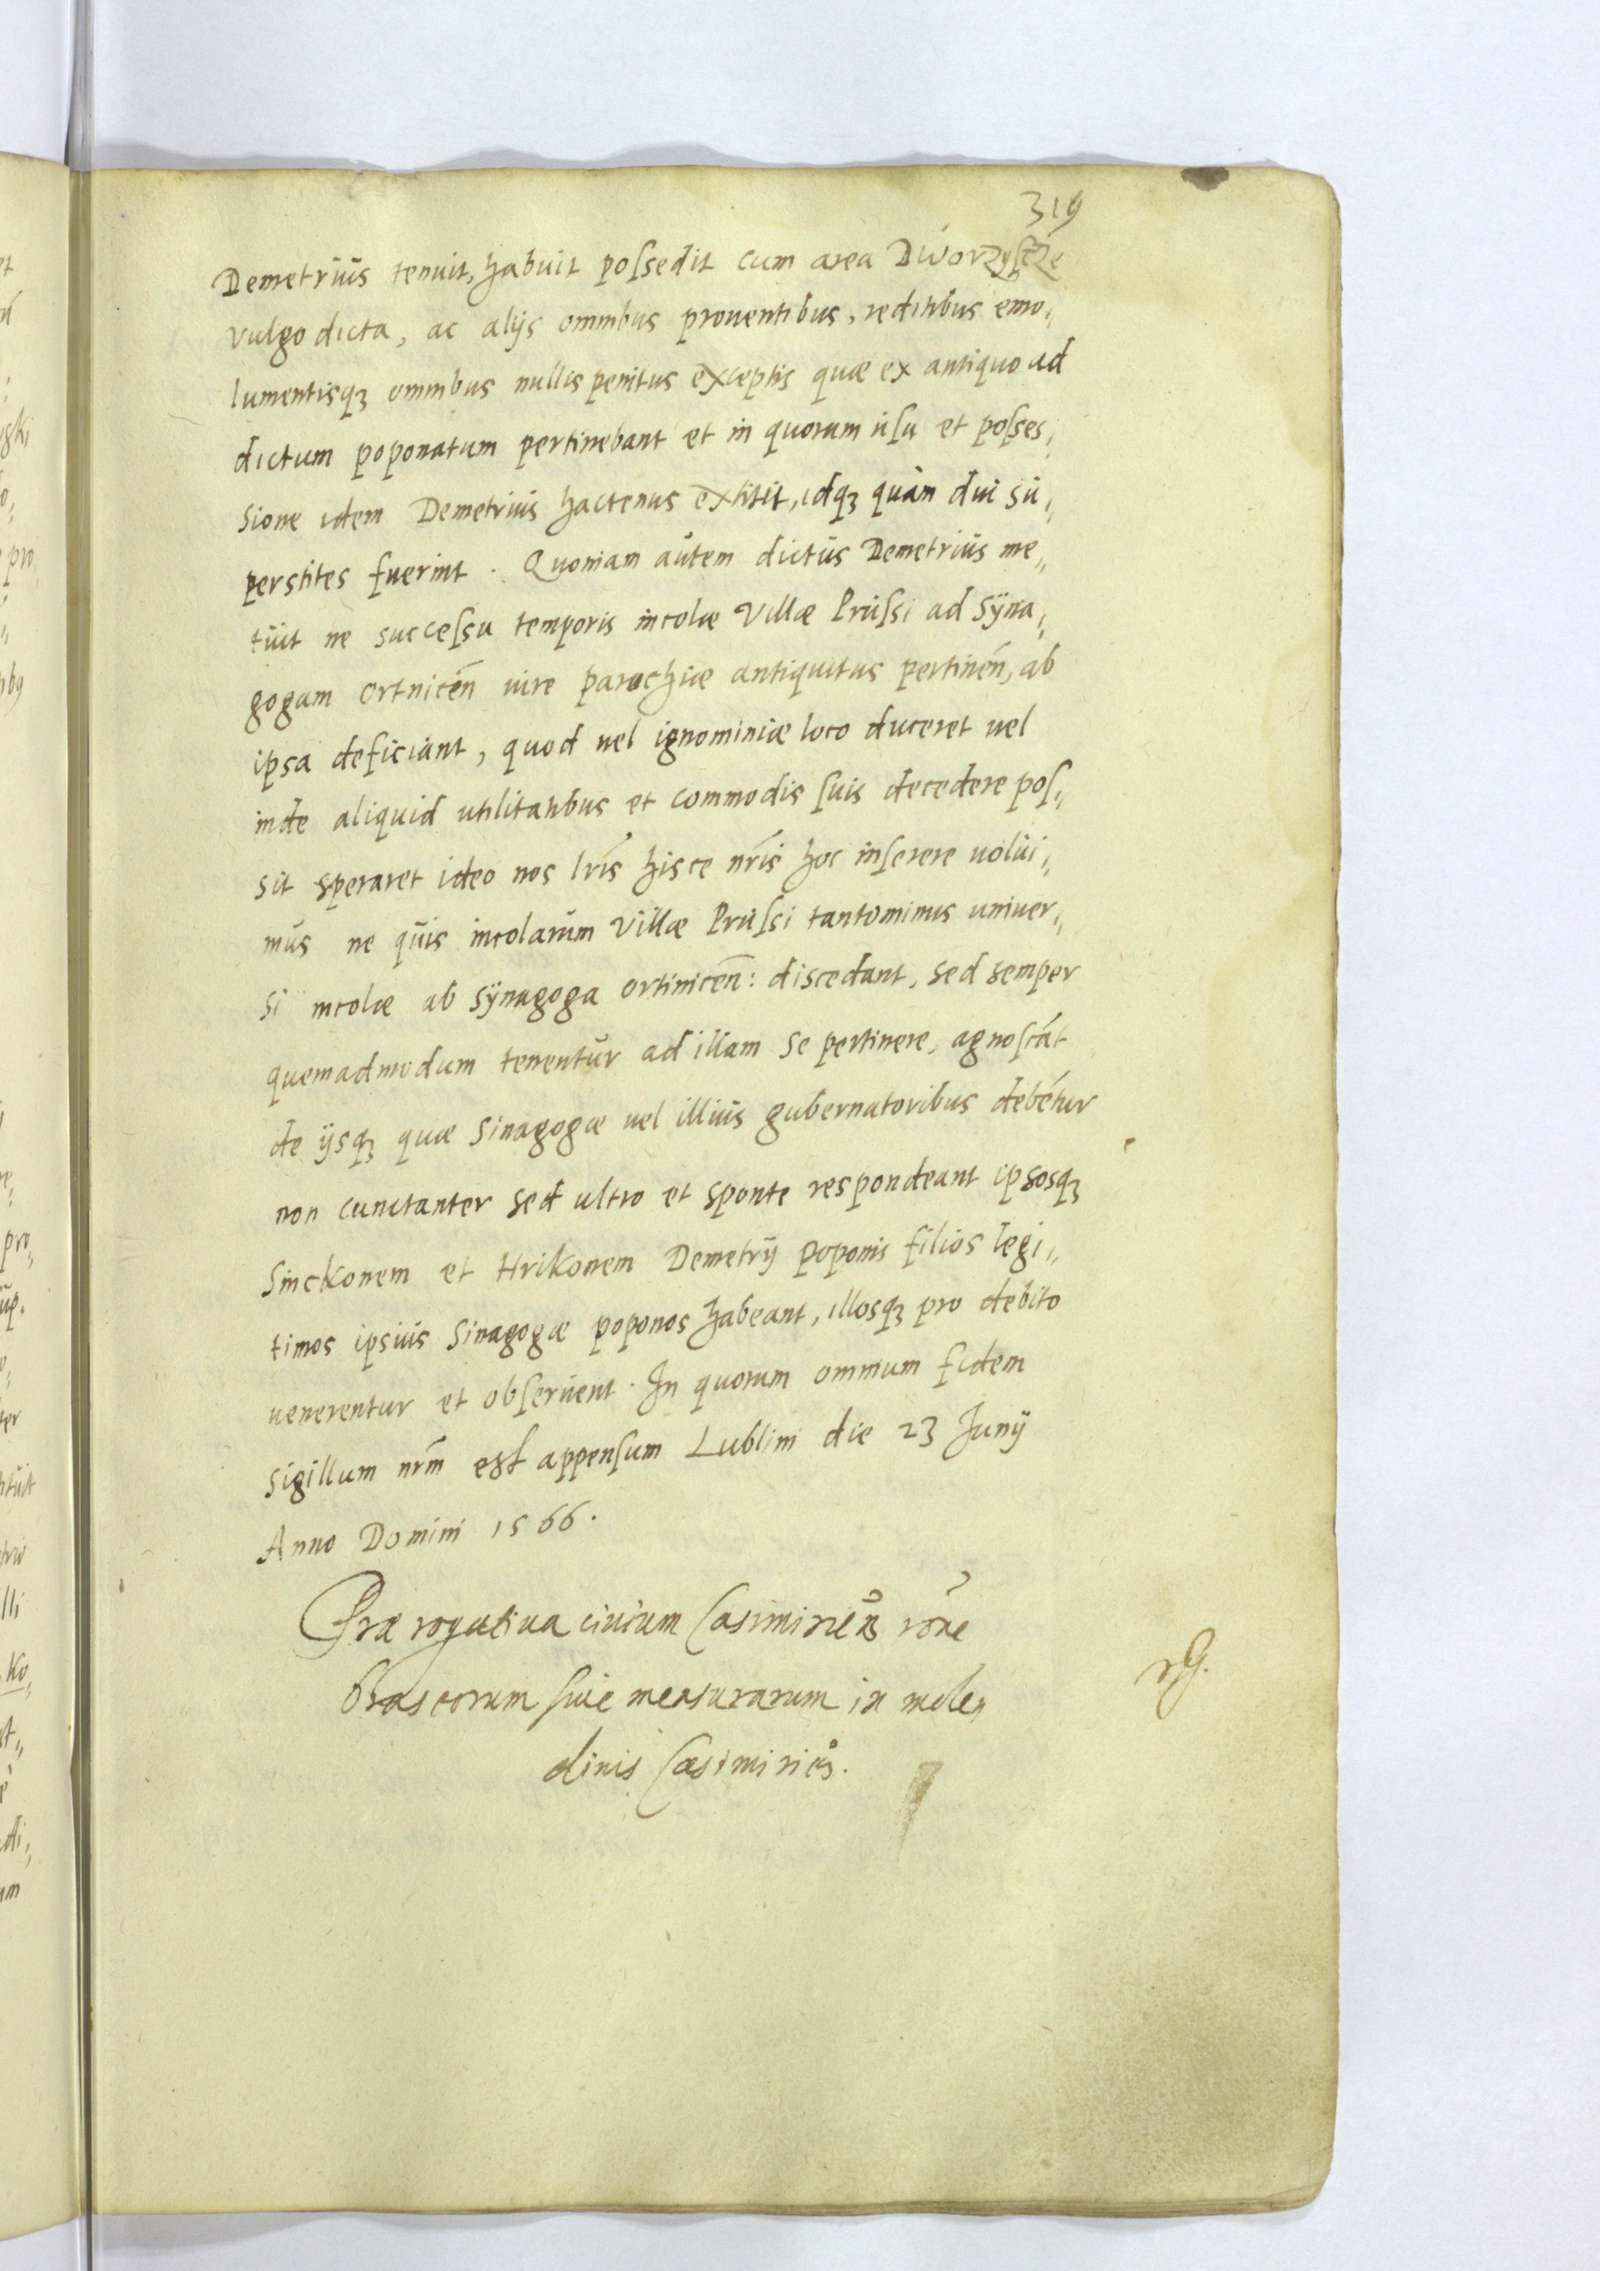 319
Demetrius tenuit, habuit possedit cum area Dworzyscze
vulgo dicta, ac alijs omnibus prouentibus, reditibus emo„
lumentisqȝ omnibus nullis penitus exceptis quæ ex antiquo ad
dictum poponatum pertinebant et in quorum usu et posses„
sione idem Demetrius hactenus extitit, idqȝ quàm dui su„
perstites fuerint. Quoniam autem dictus Demetrius me„
tuit ne successu temporis incolæ Villæ Prussi ad Syna„
gogam ortnicen̄ iure parochiæ antiquitus pertinen̄, ab
ipsa deficiant, quod uel ignominiæ loco duceret uel
inde aliquid utilitatibus et commodis suis decedere pos„
sit speraret ideo nos lr̄is hisce nr̄is hoc inserere uolui„
mus ne quis incolarum Villæ Prussi tantominus uniuer„
si incolæ ab synagoga ortinicen̄: discedant, sed semper
quemadmodum tenentur ad illam se pertinere, agnoscāt
de ijsqȝ quæ sinagogæ uel illius gubernatoribus debētur
non cunctanter sed ultro et sponte respondeant ipsosqȝ
Sinckonem et Hrikonem Demetrij poponis filios legi„
timos ipsius sinagogæ poponos habeant, illosqȝ pro debito
uenerentur et obseruent. In quorum omnium fidem
sigillum nr̄m est appensum Lublini die 23 Junij
Anno Domini 1566.
Prærogatiua ciuium Casimirien̄ rōne
braseorum siue mensurarum in molen„
dinis Casimirien̄.